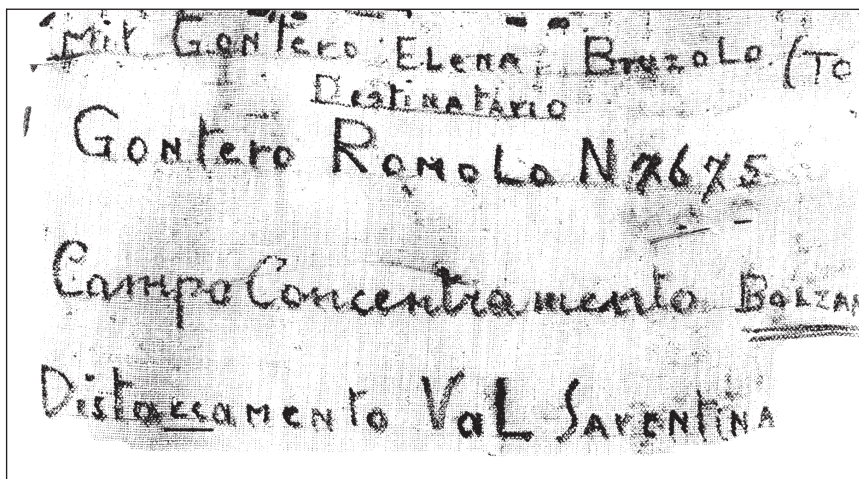 Mit Gontero Elena Bruzolo (TO
Destinatario
Gontero Romolo N 7675
Campo Concentramento BOLZAN
Distaccamento Val Sarentina